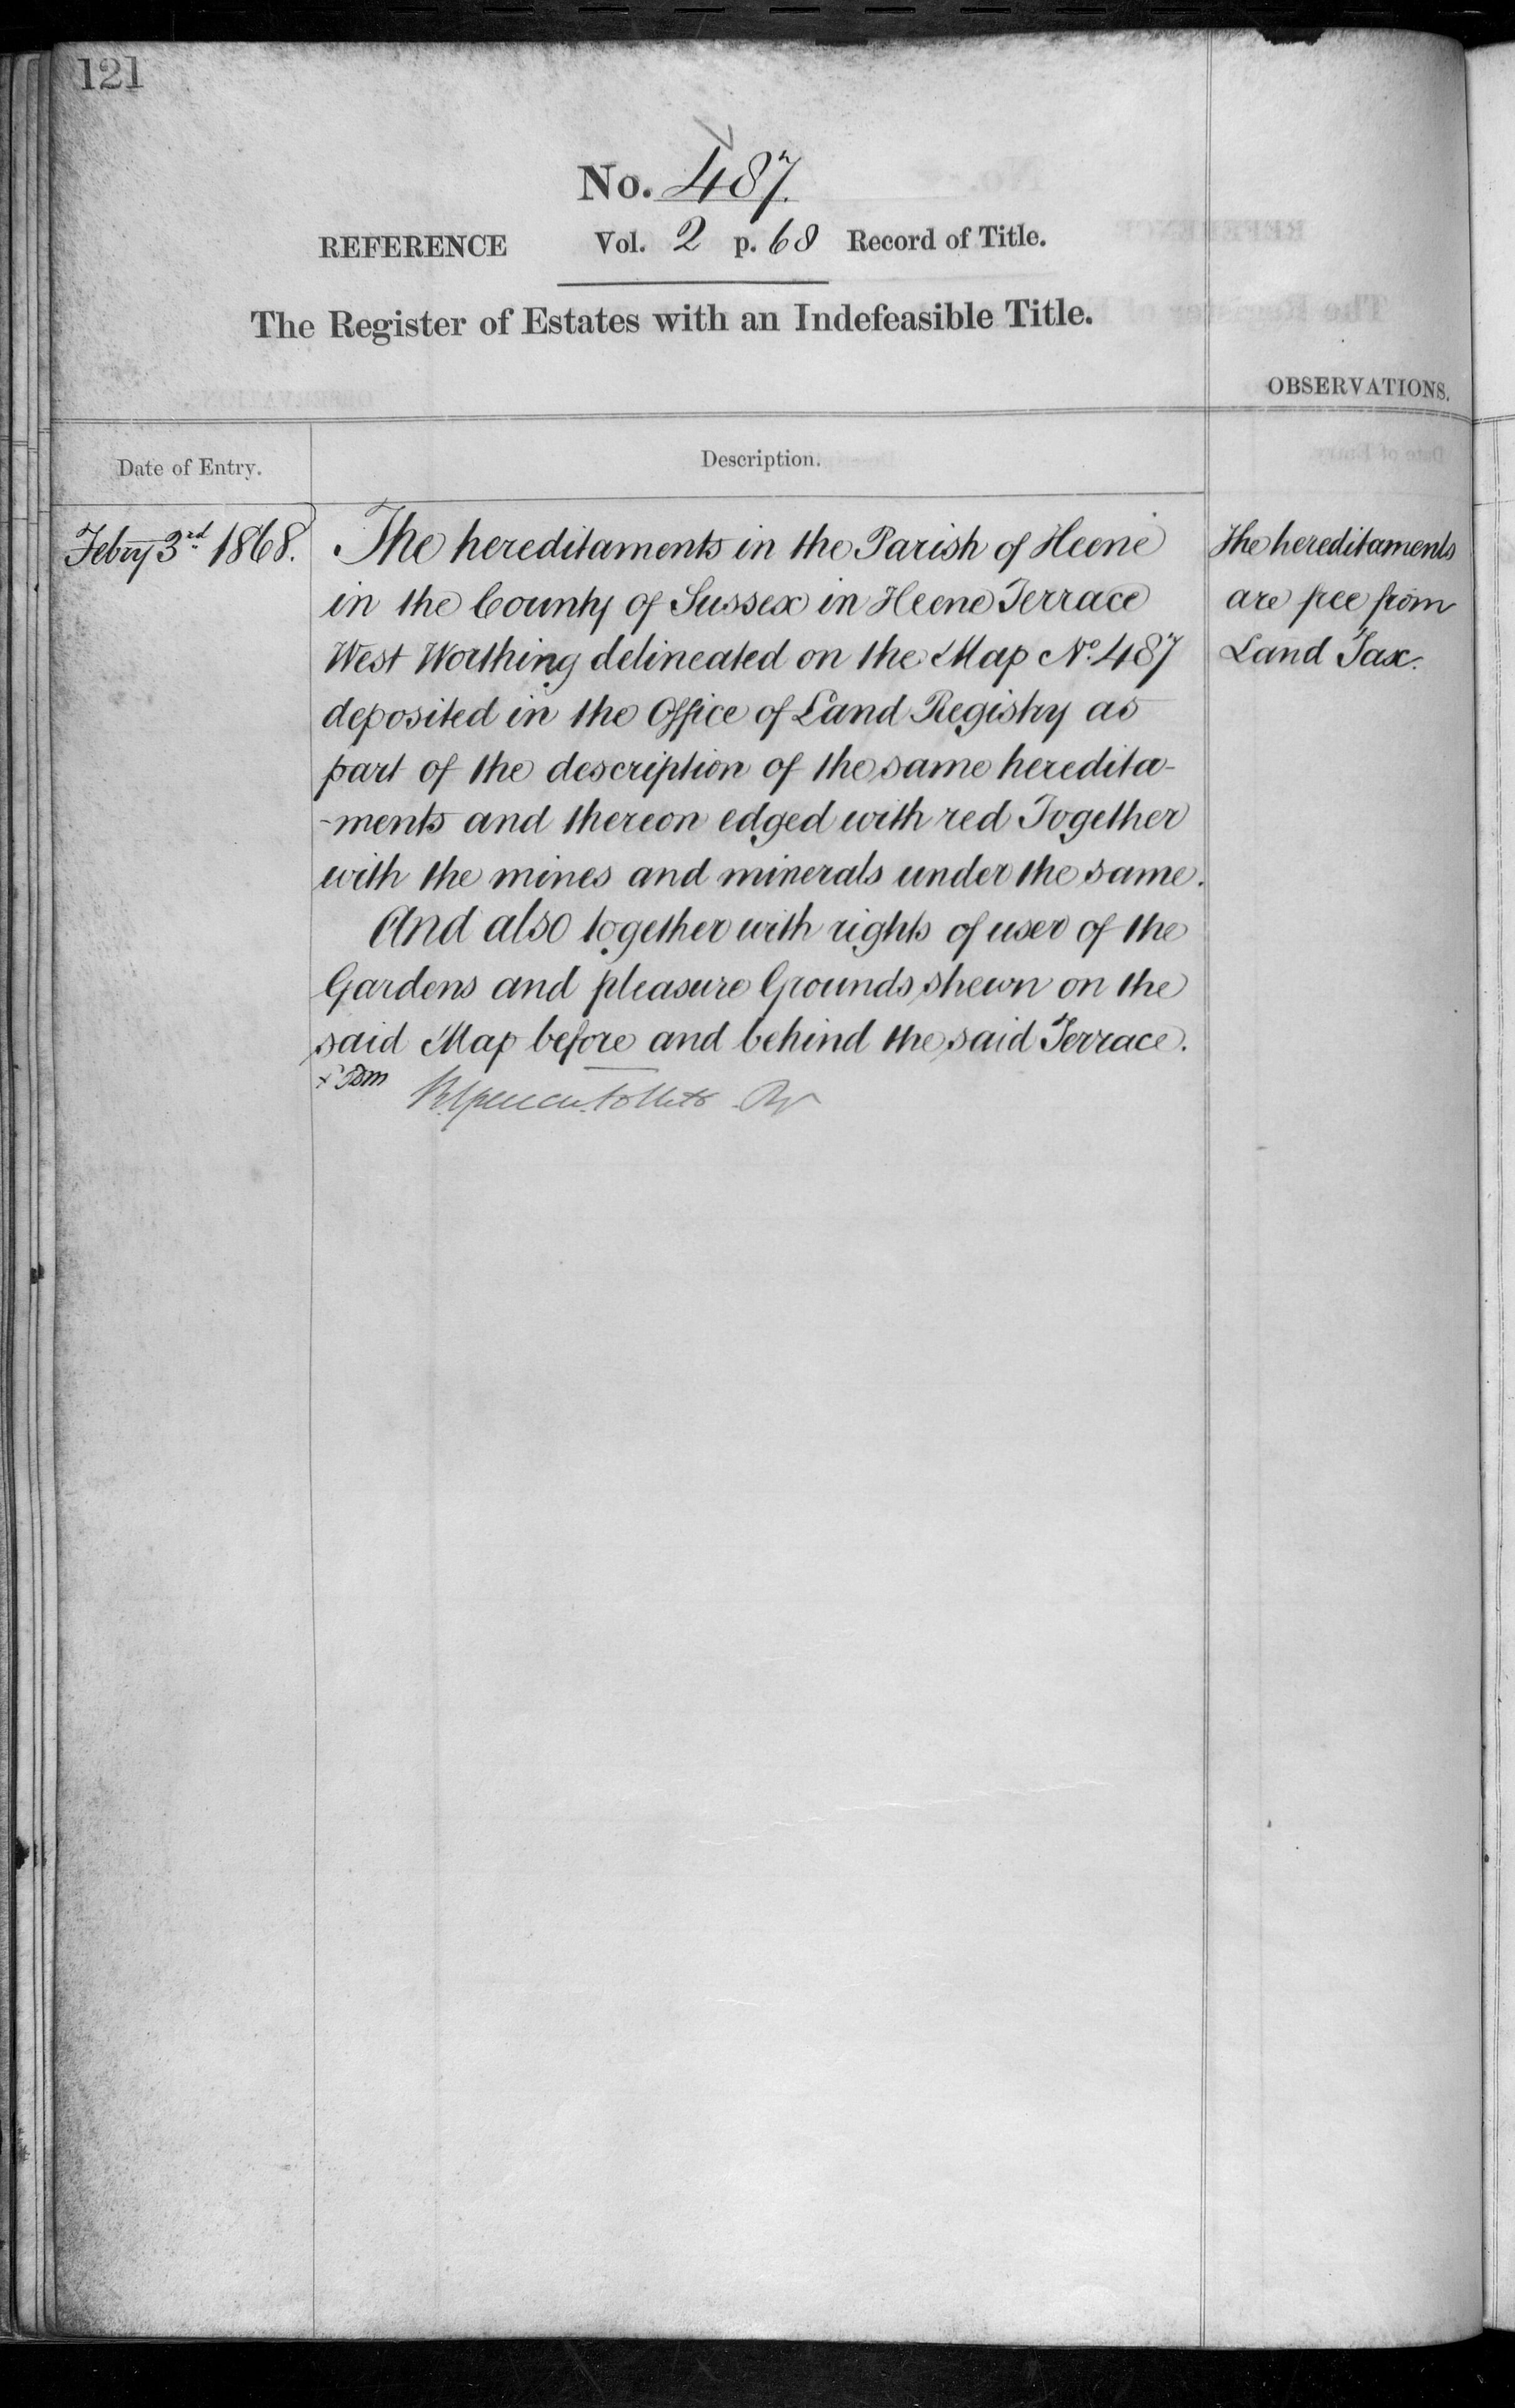 121
No. 487.
REFERENCE Vol. 2 p. 68 Record of Title.
The Register of Estates with an Indefeasible Title.
OBSERVATIONS.
Date of Entry. Description.
Febry 3rd 1868. The hereditaments in the Parish of Heene
in the County of Sussex in Heene Terrace
West Worthing delineated on the Map No. 487
deposited in the Office of Land Registry as
part of the description of the same heredita-
-ments and thereon edged with red Together
with the mines and minerals under the same.
And also together with rights of user of the
Gardens and pleasure Grounds shewn on the
said Map before and behind the said Terrace.
The hereditaments
are free from
Land Tax.